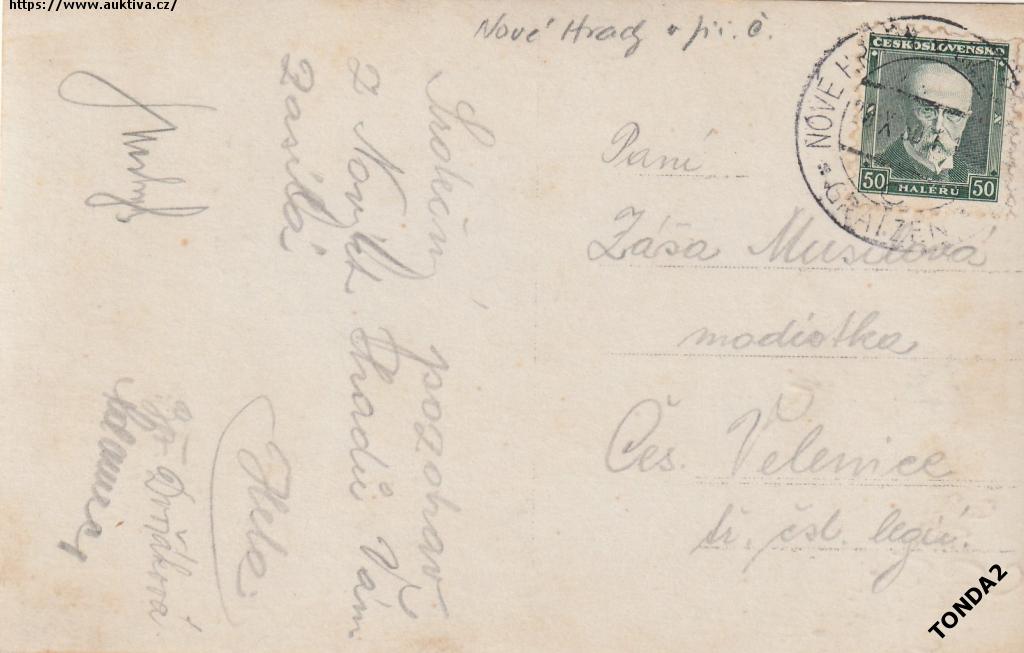 https://www.auktiva.cz/
Nové Hrady v již. Č.
Srdečný pozdrav
z Nových Hradů Vám
zasílá
Hela
Dvořáková
NOVÉ
GRATZEN
ČESKOSLOVENSKO
50 HALÉŘŮ 50
Paní
Zdeňa Musilová
modistka
Čes. Velenice
tř. čsl. legií.
TONDA2